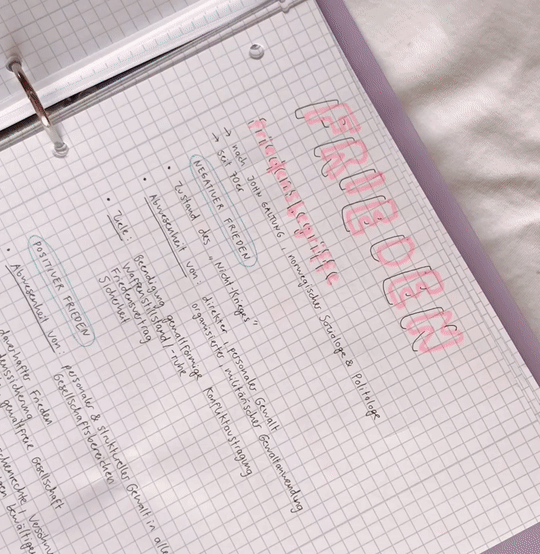 FRIEDEN
friedensbegriffe
→ nach JOHN GALTUNG, norwegischer Soziologe & Politologe
→ seit 70er
NEGATIVER FRIEDEN
• Zustand des „Nicht-Krieges"
• Abwesenheit von: direkter, personaler Gewalt
organisierter, militärischer Gewaltanwendung
• Ziele: Beendigung gewaltförmige Konfliktaustragung
Waffenstillstand / -ruhe
Friedensvertrag
Sicherheit
POSITIVER FRIEDEN
• Abwesenheit von: personaler & struktureller Gewalt in alle
Gesellschaftsbereichen
dauerhafter Frieden
gewaltfreie Gesellschaft